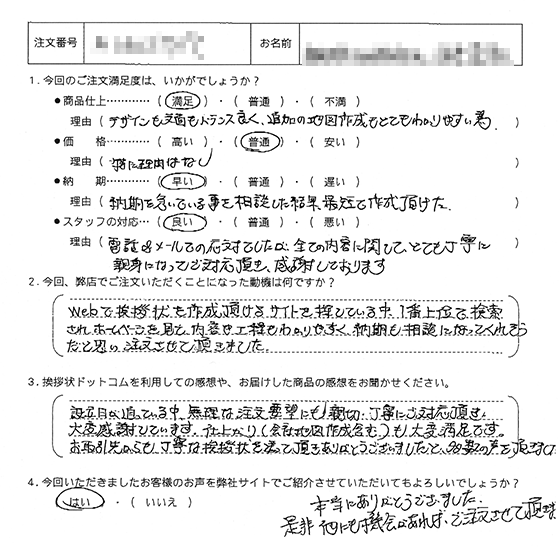 注文番号 お名前
1. 今回のご注文満足度は、いかがでしょうか?
●商品仕上………… ( 満足 ) ・ ( 普通 ) ・ ( 不満 )
理由 ( デザインも文面もバランス良く、追加の地図作成もとてもわかりやすい為 )
●価 格………… ( 高い ) ・ ( 普通 ) ・ ( 安い )
理由 ( 特に理由はなし )
●納 期………… ( 早い ) ・ ( 普通 ) ・ ( 遅い )
理由 ( 納期を急いている事を相談した結果 最短で作成頂けた. )
●スタッフの対応… ( 良い ) ・ ( 普通 ) ・ ( 悪い )
理由 ( 電話&メールでの応対でしたが、全ての内容に関して、とても丁寧に
親身になってご対応頂き、感謝しております )
2. 今回、弊店でご注文いただくことになった動機は何ですか?
Webで挨拶状を作成頂けるサイトを探している中、1番上位で検索
され、ホームページを見て、内容や工程もわかりやすく、納期も相談になってくれそう
だと思い、注文させて頂きました。
3. 挨拶状ドットコムを利用しての感想や、お届けした商品の感想をお聞かせください。
設立日が迫っている中、無理な注文要望にも親切、丁寧にご対応頂き、
大変感謝しています。仕上がり(会社地図作成含む)も大変満足です。
お取引先からも、丁寧な挨拶状を送って頂きありがとうございましたと、多数の声を頂きました
4. 今回いただきましたお客様のお声を弊社サイトでご紹介させていただいてもよろしいでしょうか?
( はい ) ・ ( いいえ )
本当にありがとうございました.
是非 他にも機会があれば、ご注文させて頂きます